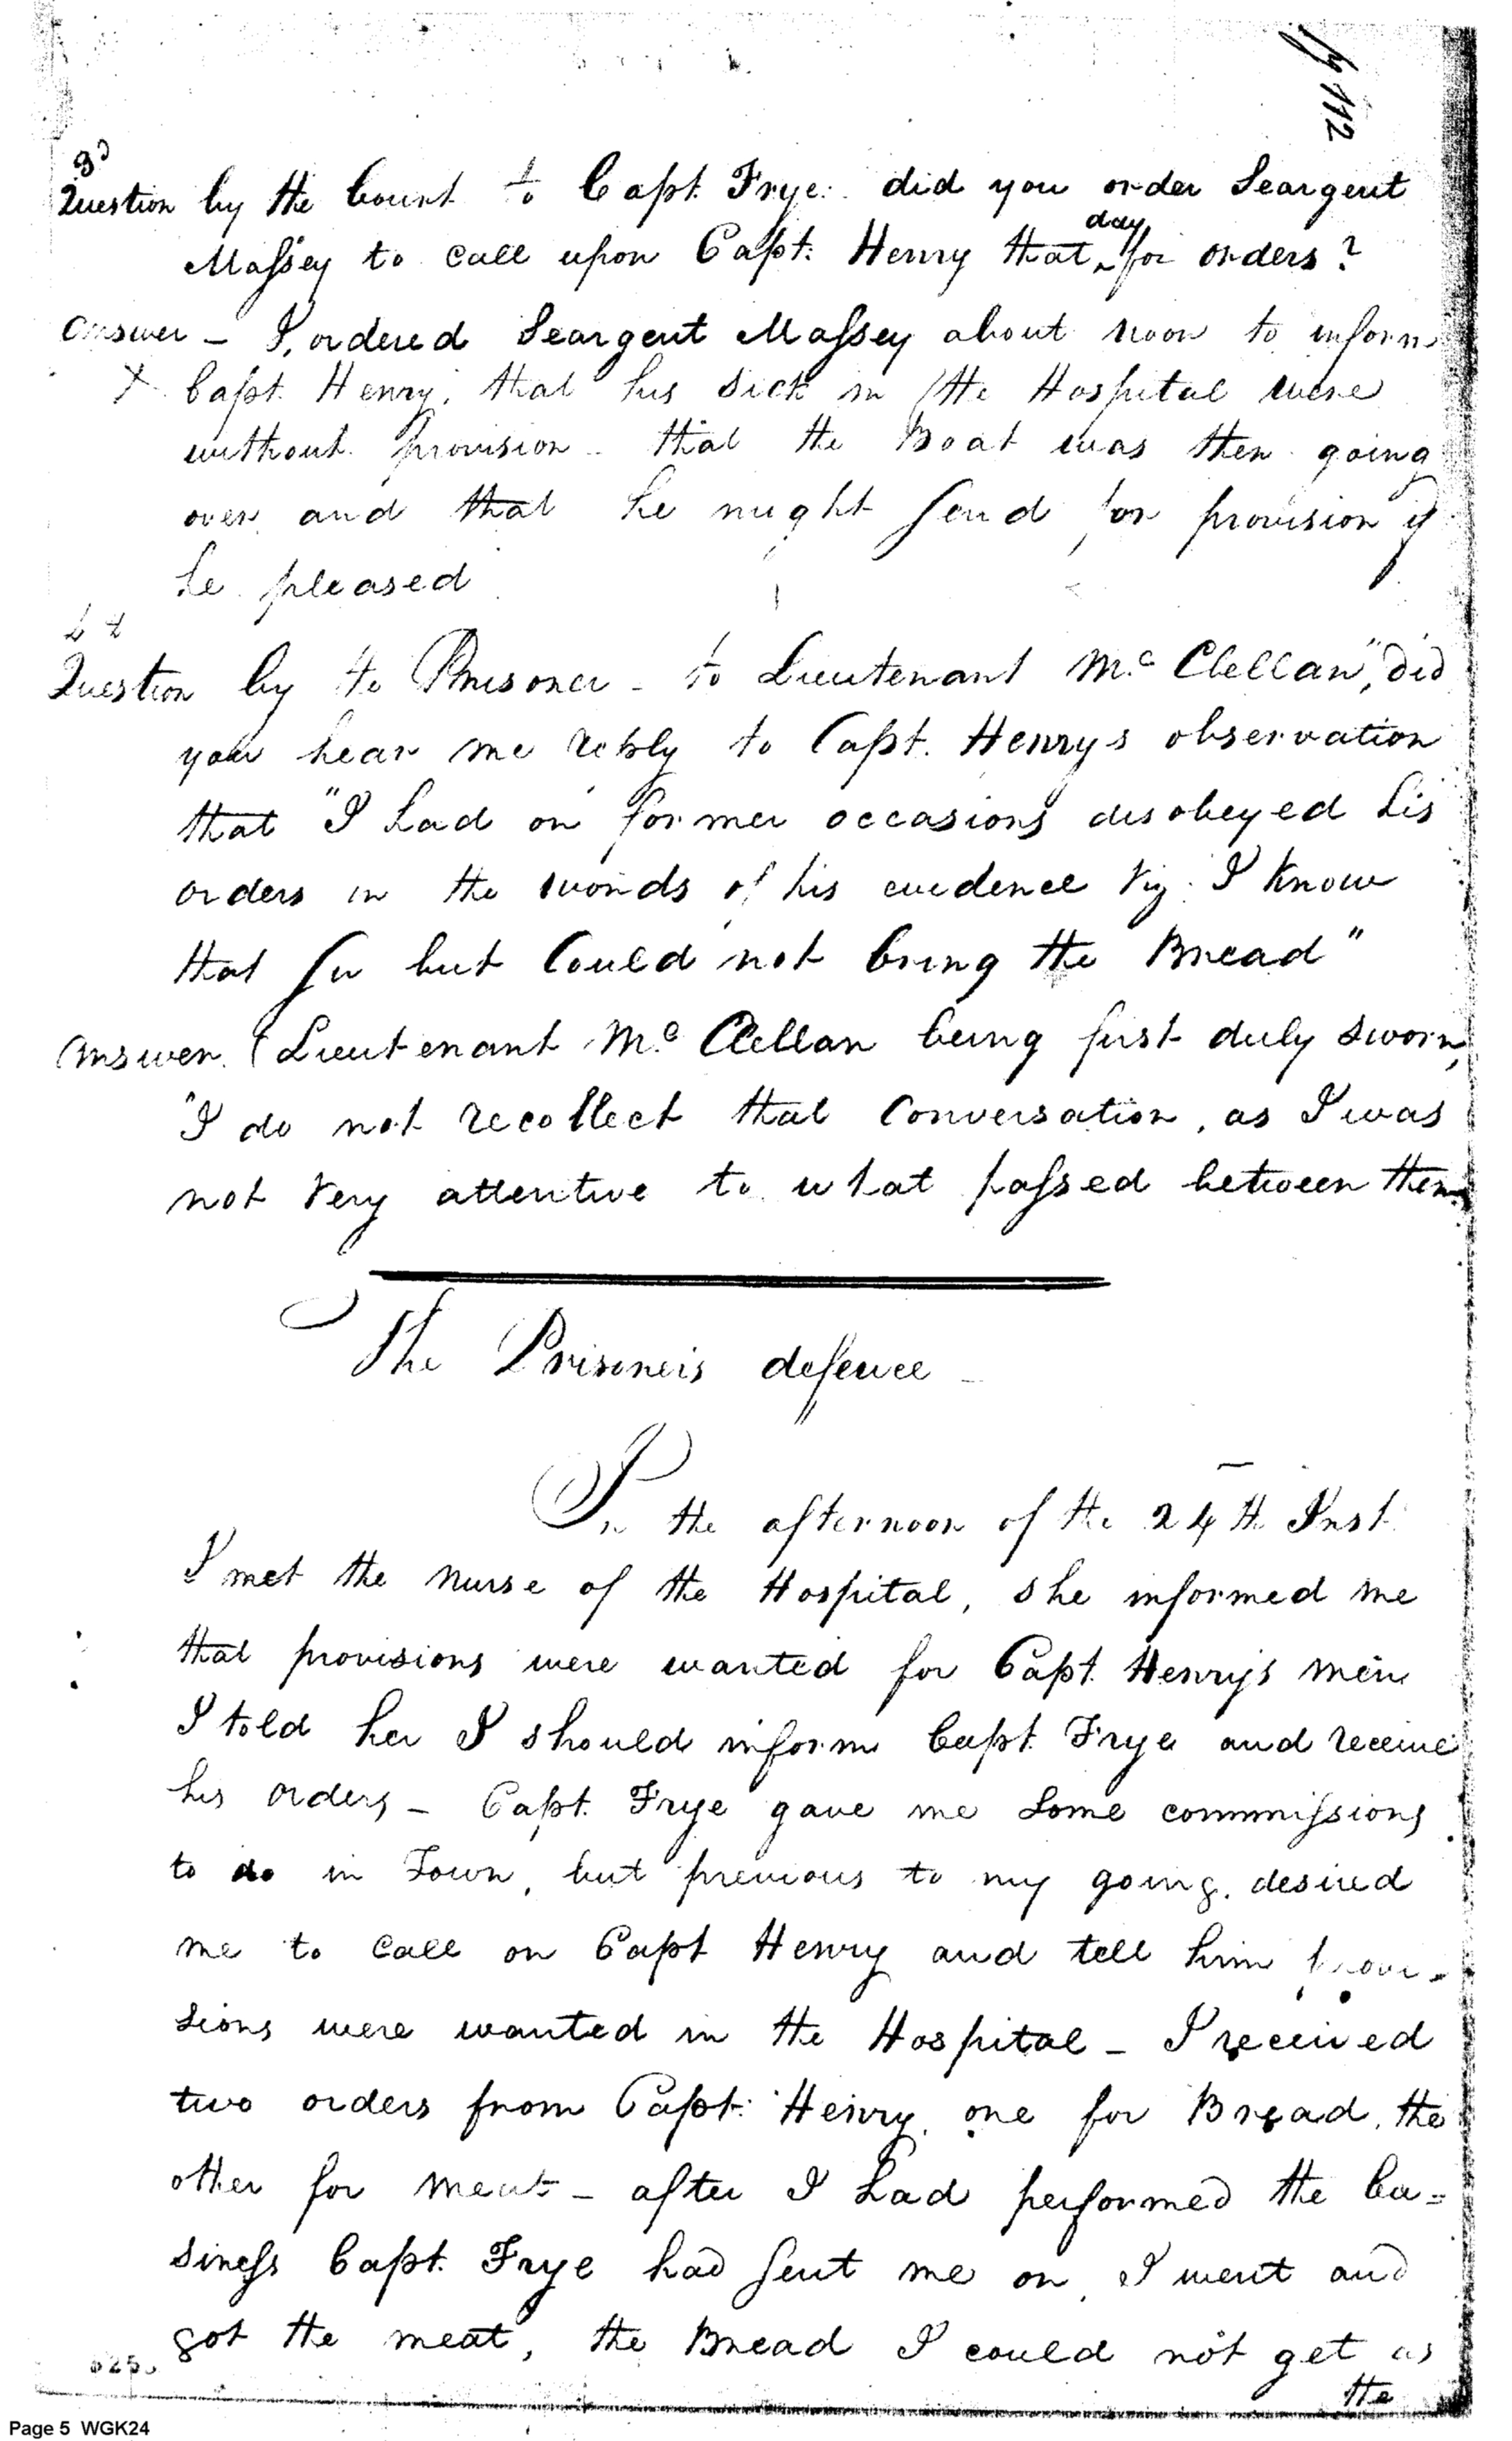 pg 112
3d
Question by the Court to Capt. Frye: did you order Seargent
Massey to call upon Capt. Henry that day for orders?
Answer - I, ordered Seargent Massey about noon to inform
X Capt. Henry, that his sick in the Hospital were
without provision - that the Boat was then going
over and that he might send for provision if
he pleased
Question by te Prisoner - to Lieutenant Mc. Clellan, "did
you hear me reply to Capt. Henrys observation
that "I had on former occasions disobeyed his
orders in the words of his evidence viz: I know
that Sir but Could not bring the Bread"
Answer. (Lieutenant Mc. Clellan being first duly sworn,
"I do not recollect that Conversation, as I was
not very attentive to what passed between them
The Prisoners defence -
In the afternoon of the 24th Inst.
I met the nurse of the Hospital, she informed me
that provisions were wanted for Capt. Henry's men
I told her I should inform Capt. Frye and receive
his orders - Capt. Frye gave me some commissions
to do in Town, but previous to my going, desired
me to call on Capt Henry and tell him provi-
sions were wanted in the Hospital - I received
two orders from Capt. Henry, one for Bread, the
other for meat - after I had performed the bu=
siness Capt. Frye had sent me on, I went and
got the meat, the Bread I could not get as
the
Page 5 WGK24